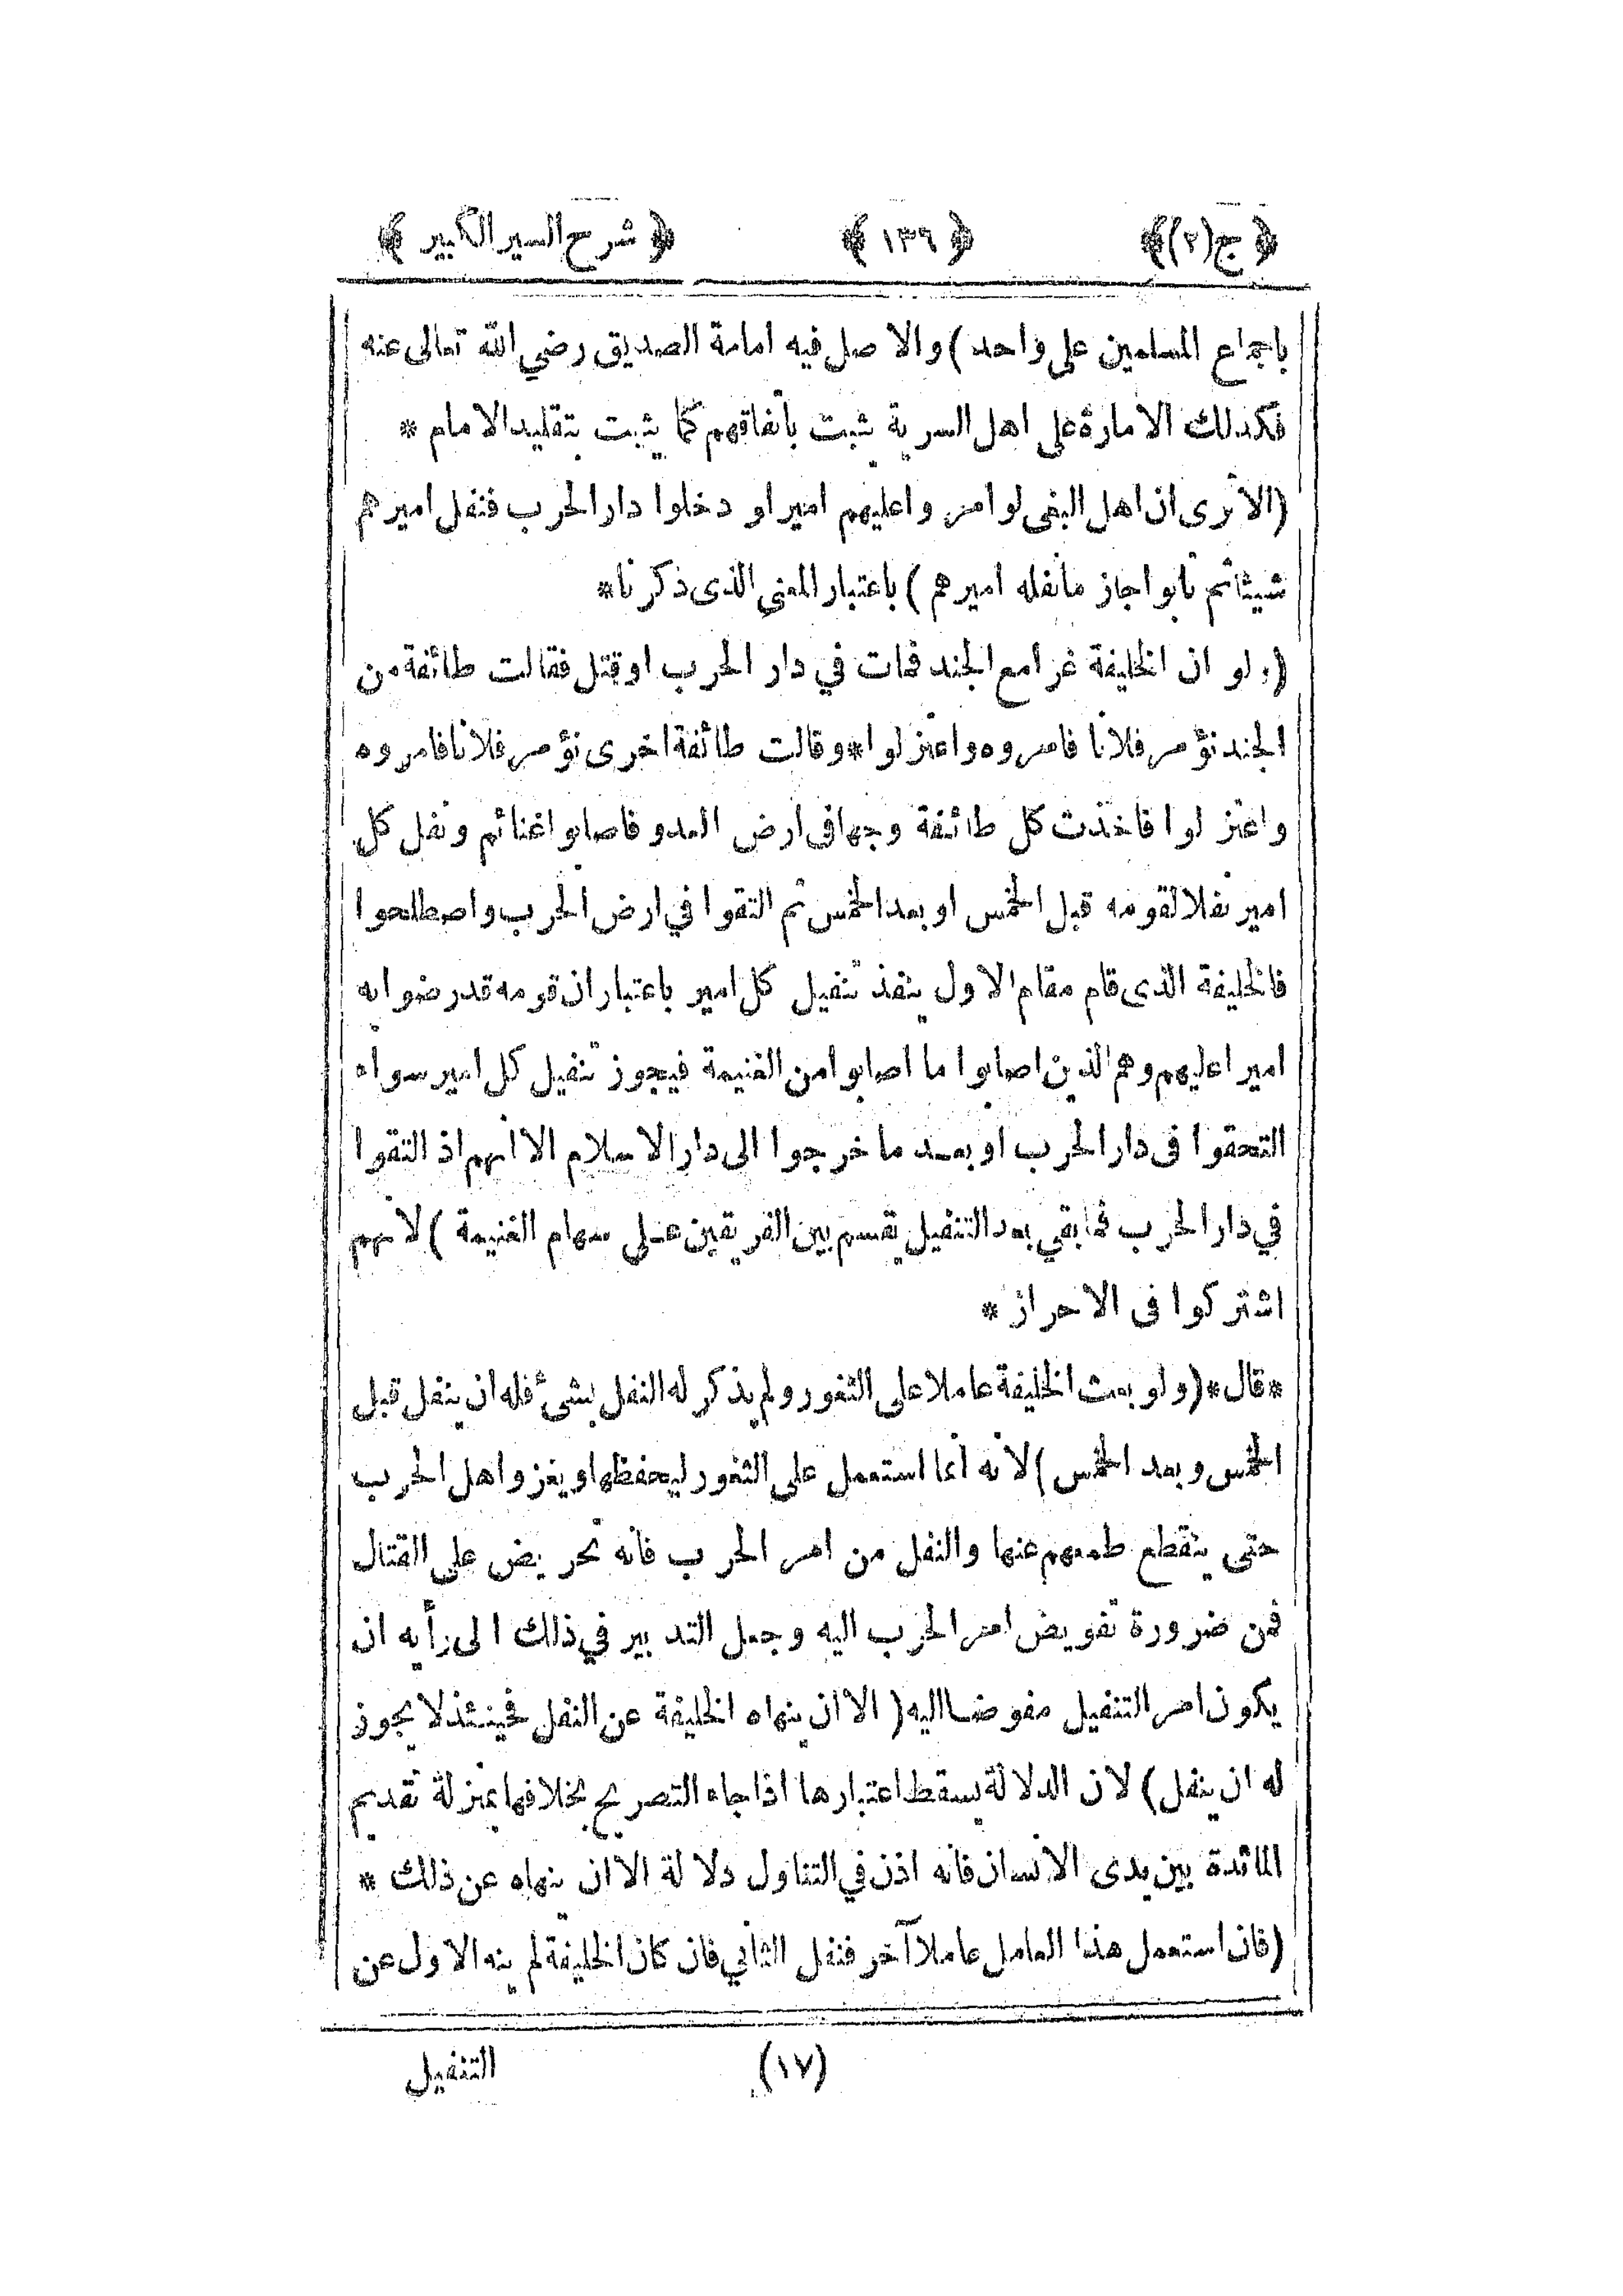 ﴿ج(٢)﴾ ﴿١٣٦﴾ ﴿شرح السير الكبير﴾
باجماع المسلمين على واحد) والاصل فيه امامة الصديق رضي الله تعالى عنه
فكذلك الامارة على اهل السرية يثبت باتفاقهم كما يثبت بتقليد الامام *
(الا ترى ان اهل البغى لو امروا عليهم اميرا ودخلوا دار الحرب فنفل اميرهم
شيئا ثم تابوا جاز ما نفله اميرهم) باعتبار المعنى الذى ذكرنا *
(ولو ان الخليفة غزا مع الجند فمات في دار الحرب او قتل فقالت طائفة من
الجند نؤمر فلانا فامروه واعتزلوا * وقالت طائفة اخرى نؤمر فلانا فامروه
واعتزلوا فاخذت كل طائفة وجها فى ارض العدو فاصابوا غنائم ونفل كل
امير نفلا لقومه قبل الخمس او بعد الخمس ثم التقوا في ارض الحرب واصطلحوا
فالخليفة الذى قام مقام الاول ينفذ تنفيل كل امير باعتبار ان قومه قد رضوا به
اميرا عليهم وهم الذين اصابوا ما اصابوا من الغنيمة فيجوز تنفيل كل امير سواء
التحقوا فى دار الحرب او بعد ما خرجوا الى دار الاسلام الا انهم اذ التقوا
في دار الحرب فما بقي بعد التنفيل يقسم بين الفريقين على سهام الغنيمة) لانهم
اشتركوا فى الاحراز *
* قال * (ولو بعث الخليفة عاملا على الثغور ولم يذكر له النفل بشئ فله ان ينفل قبل
الخمس وبعد الخمس) لانه انما استعمل على الثغور ليحفظها ويغزو اهل الحرب
حتى ينقطع طمعهم عنها والنفل من امر الحرب فانه تحريض على القتال
فمن ضرورة تفويض امر الحرب اليه وجعل التدبير في ذلك الى رأيه ان
يكون امر التنفيل مفوضا اليه (الا ان ينهاه الخليفة عن النفل فحينئذ لا يجوز
له ان ينفل) لان الدلالة يسقط اعتبارها اذا جاء التصريح بخلافها بمنزلة تقديم
المائدة بين يدى الانسان فانه اذن في التناول دلالة الا ان ينهاه عن ذلك *
(فان استعمل هذا العامل عاملا آخر فنفل الثاني فان كان الخليفة لم ينه الاول عن
(١٧) التنفيل